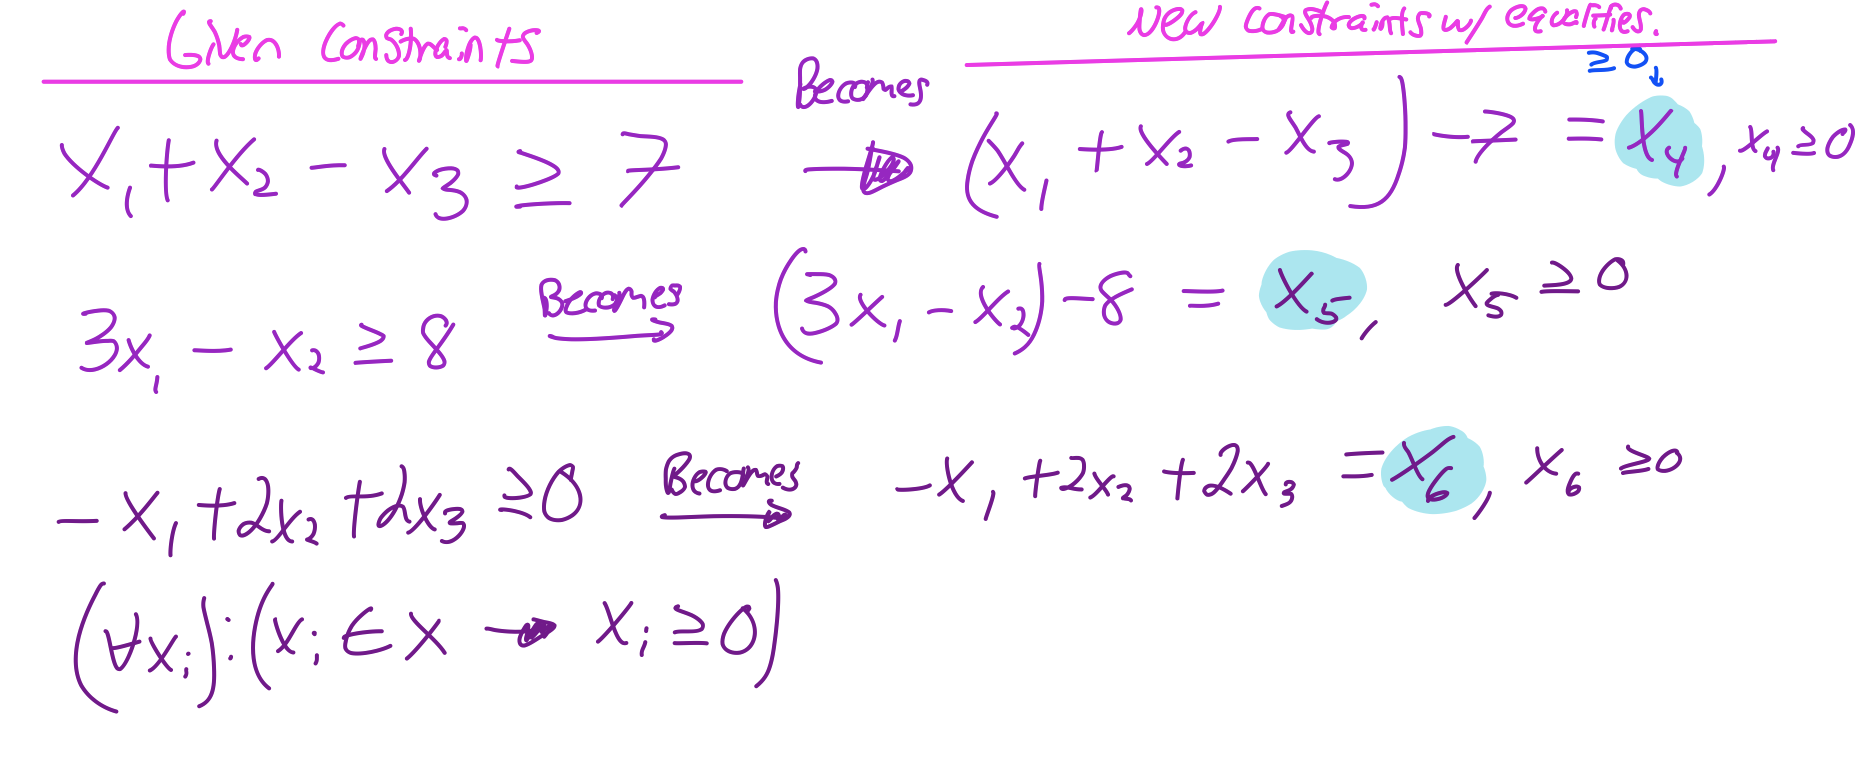 Given Constraints
New constraints w/ equalities.
x₁ + x₂ - x₃ ≥ 7 Becomes → (x₁ + x₂ - x₃) - 7 = x₄, x₄ ≥ 0
≥ 0↓
3x₁ - x₂ ≥ 8 Becomes → (3x₁ - x₂) - 8 = x₅, x₅ ≥ 0
-x₁ + 2x₂ + 2x₃ ≥ 0 Becomes → -x₁ + 2x₂ + 2x₃ = x₆, x₆ ≥ 0
(∀xᵢ):(xᵢ ∈ x → xᵢ ≥ 0)